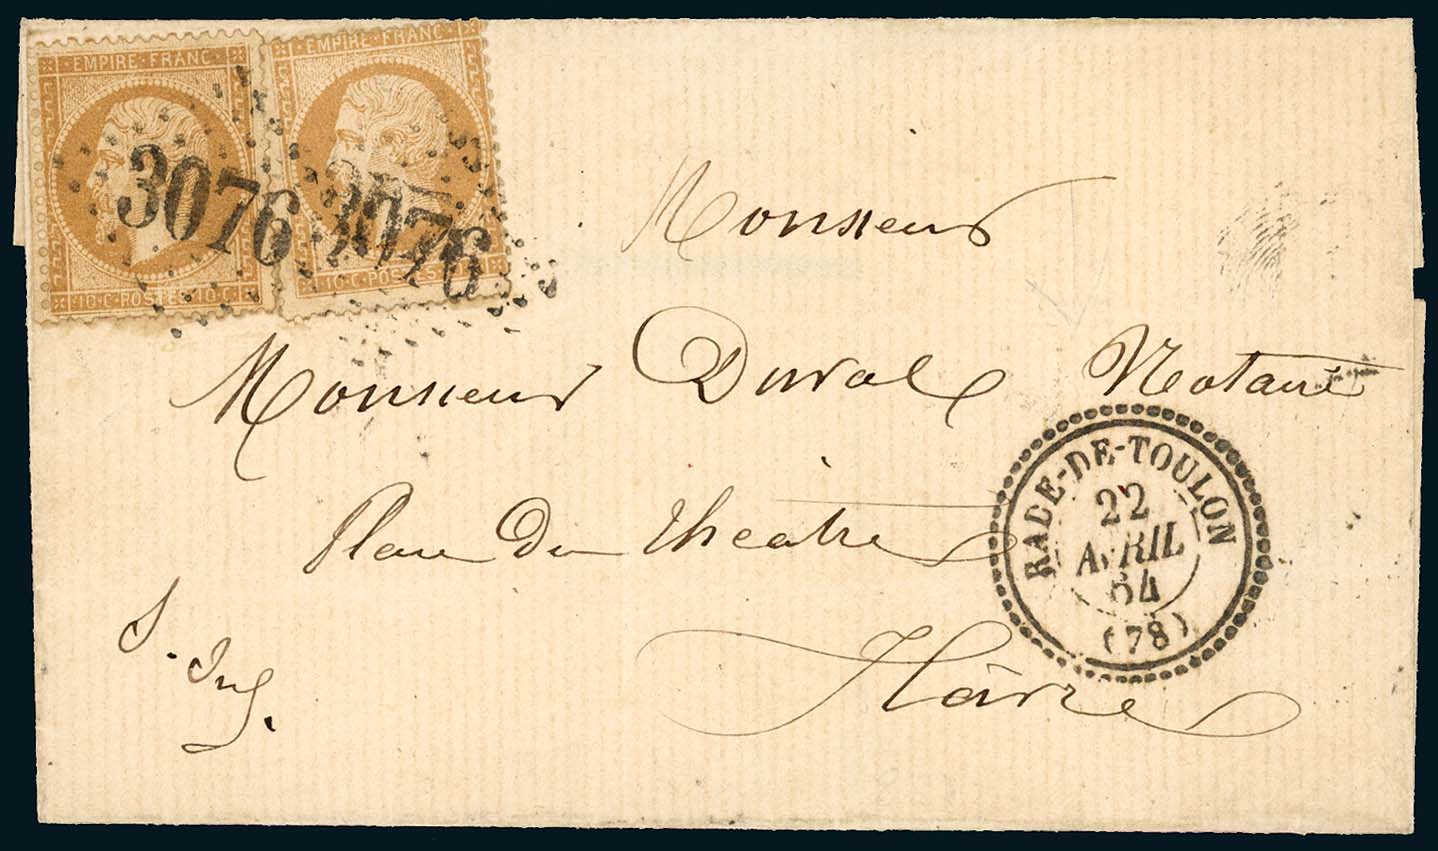 EMPIRE·FRANC·
EMPIRE·FRANC·
3076
3076
10·C·POSTES·10·C
10·C·POSTES·10·C
Monsieur
Monsieur Duval Notaire
Place du théatre
Hâvre
RADE-DE-TOULON
22
AVRIL
64
(78)